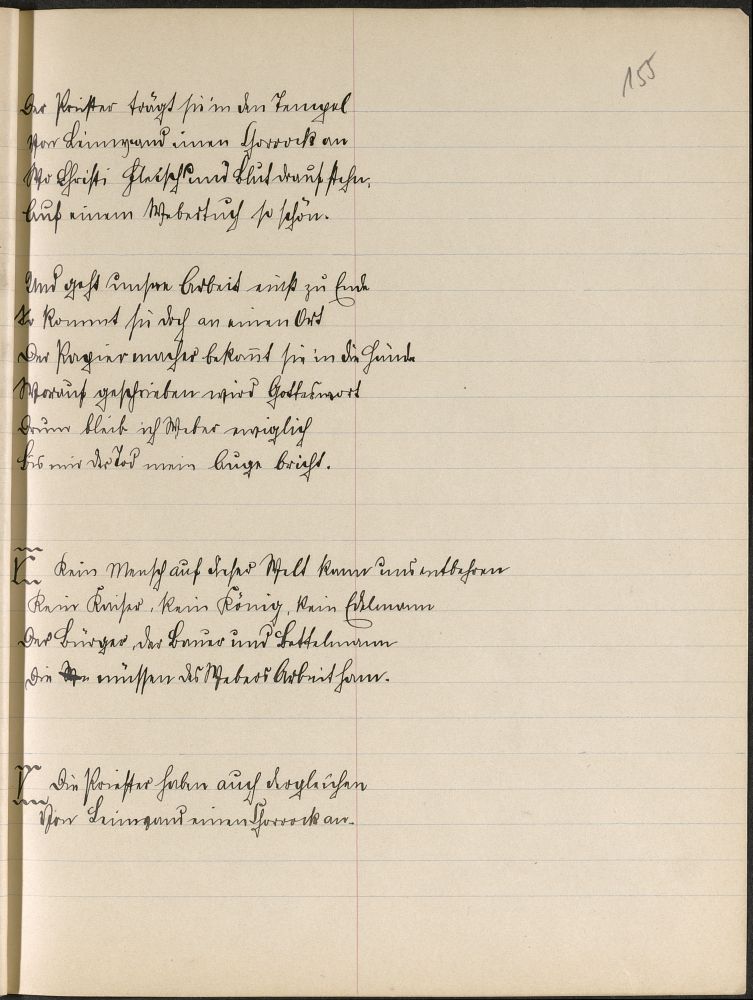 155
Der Priester trägt sie in den Tempel
Von Leinwand einen Chorrock an
Wo Christi Fleisch und Blut drauf stehn,
Auf einem Webertuch so schön.
Und geht unsre Arbeit einst zu Ende
So kommt sie doch an einen Ort
Der Papiermacher bekom̄t sie in die Hände
Worauf geschrieben wird Gotteswort
Drum bleib ich Weber ewiglich
Bis mir der Tod mein Auge bricht.
V Kein Mensch auf dieser Welt kann uns entbehren
Kein Kaiser, kein König, kein Edelmann
Der Bürger, der Bauer und Bettelmann
Die müssen des Webers Arbeit ham.
V Die Priester haben auch dergleichen
Von Leinwand einen Chorrock an.